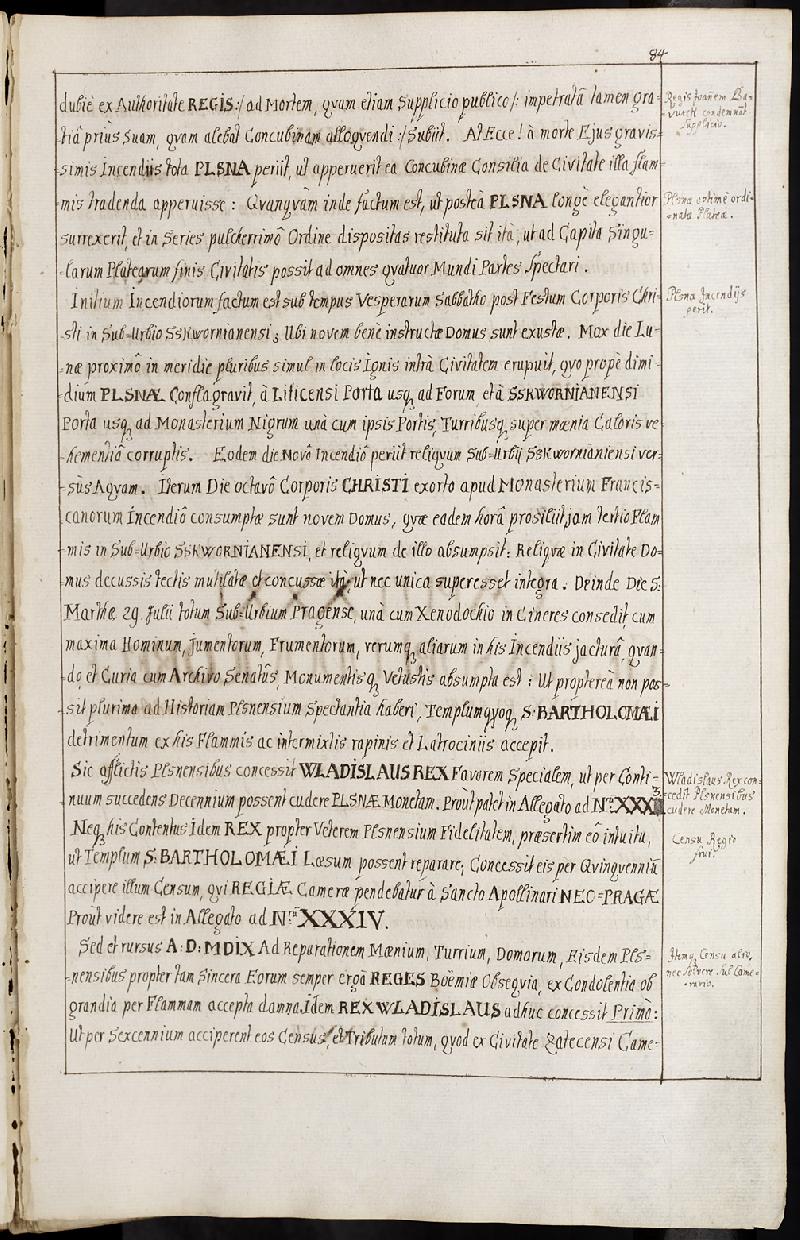 84
dubiè ex Authoritate REGIS:/ ad Mortem, qvam etiam Supplicio publico /: impetratâ tamen gra-
tiâ prius suam, qvam alebat Concubinam alloqvendi :/ Subiit. At Ecce! à morte Ejus gravis-
simis Incendijs tota PLSNA periit, ut apperuerit ea Concubinæ Consilia de Civitate illa flam-
mis tradenda apperuisse: Qvanqvàm inde factum est, ut posteà PLSNA longè elegantior
surrexerit, et in Series pulcherrimô Ordine dispositas restituta sit ità, ut ad Capita Singu-
larum Platearum finis Civitatis possit ad omnes qvatuor Mundi Partes spectari.
Initium Incendiorum factum est sub tempus Vesperarum Sabbatho post Festum Corporis Chri-
sti in Sub-Urbio Sskwornianensi; Ubi novem benè instructæ Domus sunt exustæ. Mox die Lu-
næ proximô in meridie pluribus simul in locis Ignis intrà Civitatem erupuit, qvo propè dimi-
dium PLSNÆ Conflagravit, à Liticensi Porta usq, ad Forum et à SSKWORNIANENSI
Porta usq, ad Monasterium Nigrum unà cum ipsis Portis, Turribusq, super mænia Caloris ve-
hementiâ corruptis. Eodem die Novô Incendiô periit reliqvum Sub-Urbij Sskwornianiensi ver-
sùs Aqvam. Iterum Die octavô Corporis CHRISTI exorto apud Monasterium Francis-
canorum Incendiô consumptæ sunt novem Domus, qvæ eadem horâ prosiliit jam tertiò Flam
mis in Sub-Urbio SSKWORNIANENSI, et reliqvum de illo absumpsit: Reliqvæ in Civitate Do-
mus decussis tectis mutilatæ et concussæ ità, ut nec unica superesset integra. Deinde Die S:
Marthæ 29. Julii totum Sub-Urbium Pragense, unà cum Xenodochio in Cineres consedit, cum
maxima Hominum, Jumentorum, Frumentorum, rerumq, aliarum in his Incendiis jacturâ, qvan-
do, et Curia cum Archivo Senatûs, Monumentisq, Vetustis absumpta est: Ut proptereà non pos-
sit plurima ad Historiam Plsnensium Spectantia haberi, Templumqvoq, S. BARTHOLOMÆI
detrimentum ex his Flammis ac intermixtis rapinis et Latrociniis accepit.
Sic afflictis Plsnensibus concessit WLADISLAUS REX Favorem Specialem, ut per Conti-
nuum succedens Decennium possent cudere PLSNÆ Monetam. Prout patet in Allegato ad
Neq, his Contentus Idem REX propter Veterem Plsnensium Fidelitatem, præsertim eô intuitu,
ut Templum S: BARTHOLOMÆI Læsum possent reparare, Concessit eis per Qvinqvenniũ
accipere illum Censum, qvi REGIÆ Cameræ pendebatur à Sancto Apollinari NEO-PRAGÆ
Prout videre est in Allegato ad Nrũ XXXIV.
Sed et rursus A: D: MDIX Ad Reparationem Mænium, Turrium, Domorum, Eisdem Pls-
nensibus propter tam Sincera Eorum semper ergà REGES Boëmiæ Obseqvia, ex Condolentia ob
grandia per Flammam accepta damna, Idem REX WLADISLAUS adhuc concessit Primò:
Ut per Sexcennium acciperent eos Census, et Tributum totum, qvod ex Civitate Zatecensi Came-
Plsna optimè ordi-
nata Platea.
Plsna Incendijs
periit.
Wladislaus Rex con-
cedit Plsnensibus
cudere Monetam.
Censu Regis
frui.